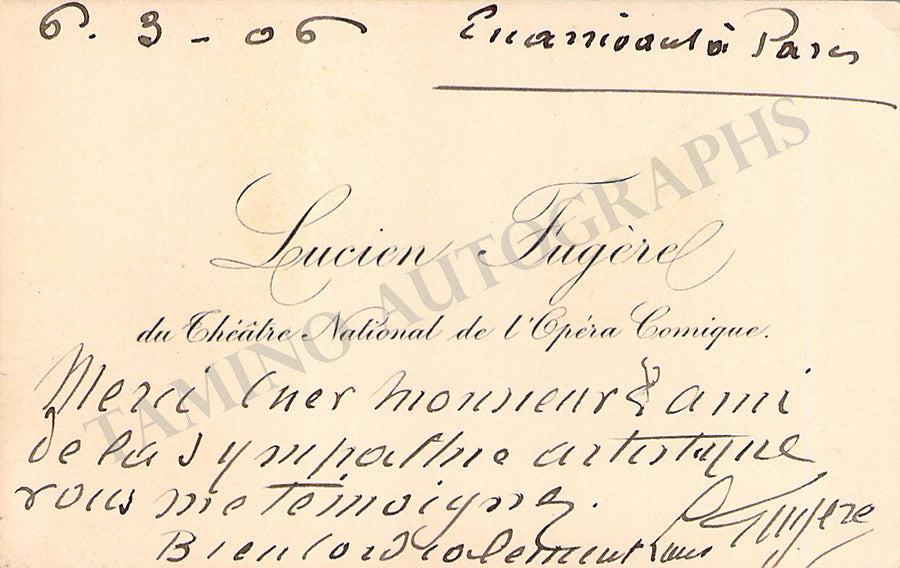 6. 3 - 06 En arrivant à Paris
Lucien Fugère
du Théâtre National de l'Opéra Comique.
TAMINO AUTOGRAPHS
Merci cher monsieur & ami
de la sympathie artistique
vous me témoignez.
Bien cordialement
L Fugère